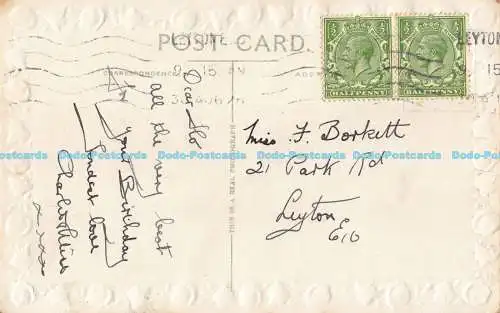 POST CARD.
LEYTON
2 15 PM
15
CORRESPONDENCE
ADDRESS
HALFPENNY
HALFPENNY
Dear Flo
All the very best
for your Birthday
Fondest love
x xxx
THIS IS A REAL PHOTOGRAPH
Miss F. Borkett
21 Park Rd
Leyton
E10
Dodo-Postcards Dodo-Postcards Dodo-Postcards Dodo-Postcards Dodo-Postcards